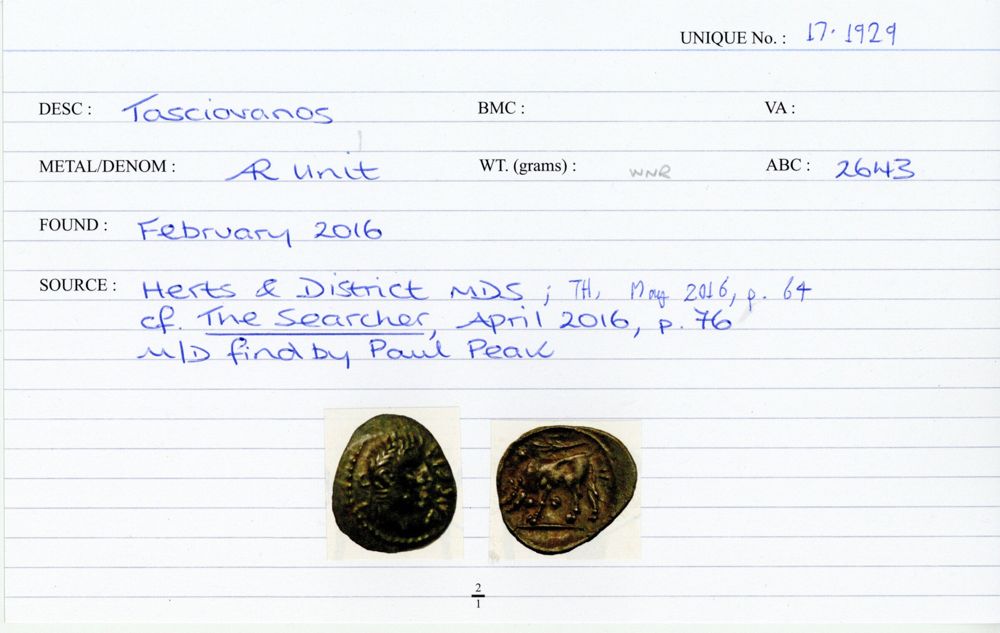 UNIQUE No. : 17.1929
DESC : Tasciovanos BMC : VA :
METAL/DENOM : AR Unit WT. (grams) : WNR ABC : 2643
FOUND : February 2016
SOURCE : Herts & District MDS ; TH, May 2016, p. 64
cf. The Searcher, April 2016, p. 76
M/D find by Paul Peak
2
1